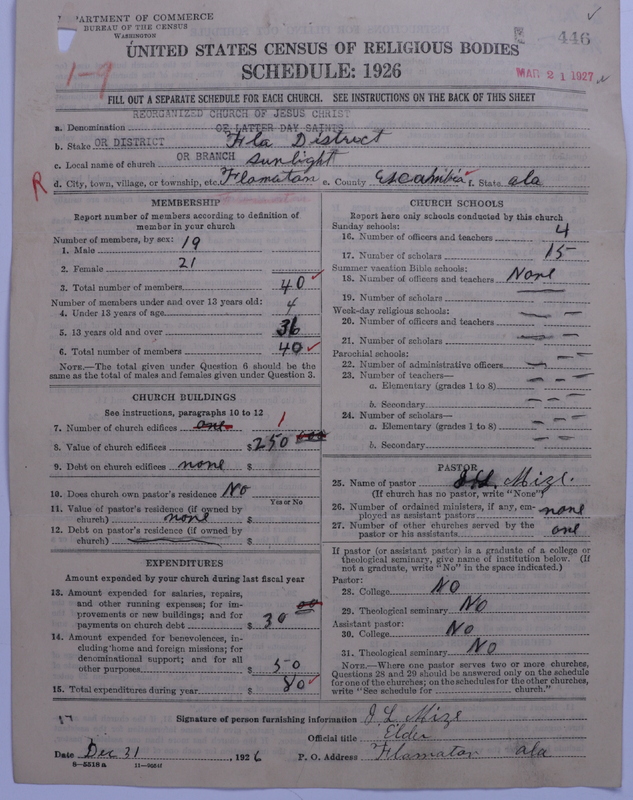 DEPARTMENT OF COMMERCE
BUREAU OF THE CENSUS
WASHINGTON
446
UNITED STATES CENSUS OF RELIGIOUS BODIES
1-9
SCHEDULE: 1926
MAR 21 1927
FILL OUT A SEPARATE SCHEDULE FOR EACH CHURCH. SEE INSTRUCTIONS ON THE BACK OF THIS SHEET
REORGANIZED CHURCH OF JESUS CHRIST
a. Denomination OF LATTER DAY SAINTS
b. Stake OR DISTRICT Fla District
c. Local name of church OR BRANCH Sunlight
R d. City, town, village, or township, etc. Flomaton e. County Escambia f. State ala
MEMBERSHIP
Report number of members according to definition of
member in your church
Number of members, by sex:
1. Male 19
2. Female 21
3. Total number of members 40
Number of members under and over 13 years old:
4. Under 13 years of age 4
5. 13 years old and over 36
6. Total number of members 40
NOTE.—The total given under Question 6 should be
same as the total of males and females given under Question 3.
CHURCH BUILDINGS
See instructions, paragraphs 10 to 12
7. Number of church edifices one 1
8. Value of church edifices $ 250
9. Debt on church edifices none $
10. Does church own pastor's residence No
Yes or No
11. Value of pastor's residence (if owned by
church) none $
12. Debt on pastor's residence (if owned by
church) $
EXPENDITURES
Amount expended by your church during last fiscal year
13. Amount expended for salaries, repairs,
and other running expenses; for im-
provements or new buildings; and for
payments on church debt $ 30
14. Amount expended for benevolences, in-
cluding home and foreign missions; for
denominational support; and for all
other purposes $ 50
15. Total expenditures during year $ 80
CHURCH SCHOOLS
Report here only schools conducted by this church
Sunday schools:
16. Number of officers and teachers 4
17. Number of scholars 15
Summer vacation Bible schools:
18. Number of officers and teachers None
19. Number of scholars
Week-day religious schools:
20. Number of officers and teachers
21. Number of scholars
Parochial schools:
22. Number of administrative officers
23. Number of teachers—
a. Elementary (grades 1 to 8)
b. Secondary
24. Number of scholars—
a. Elementary (grades 1 to 8)
b. Secondary
PASTOR
25. Name of pastor J L Mize.
(If church has no pastor, write "None")
26. Number of ordained ministers, if any, em-
ployed as assistant pastors none
27. Number of other churches served by the
pastor or his assistants one
If pastor (or assistant pastor) is a graduate of a college or
theological seminary, give name of institution below. (If
not a graduate, write "No" in the space indicated.)
Pastor:
28. College No
29. Theological seminary No
Assistant pastor:
30. College No
31. Theological seminary No
NOTE.—Where one pastor serves two or more churches,
Questions 28 and 29 should be answered only on the schedule
for one of the churches; on the schedules for the other churches,
write "See schedule for church."
Signature of person furnishing information J L Mize
Official title Elder
Date Dec 31, 1926 P. O. Address Flomaton ala
8-5518 a